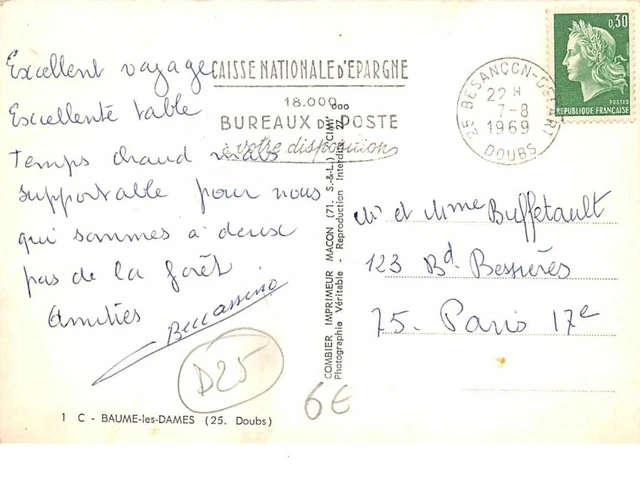 Excellent voyage
Excellente table
Temps chaud mais
supportable pour nous
qui sommes à deux
pas de la forêt
Amitiés
Beccassino
CAISSE NATIONALE d'EPARGNE
18.000
BUREAUX DE POSTE
à votre disposition
25 BESANCON-
22 H
7-8
1969
DOUBS
0,30
POSTES
REPUBLIQUE FRANÇAISE
COMBIER IMPRIMEUR MACON (71. S.-&-L.) "CIM"
Photographie Véritable - Reproduction Interdite.
Mr et Mme Buffetault
123 Bd. Bessières
75. Paris 17e
D25
6€
1 C - BAUME-les-DAMES (25. Doubs)